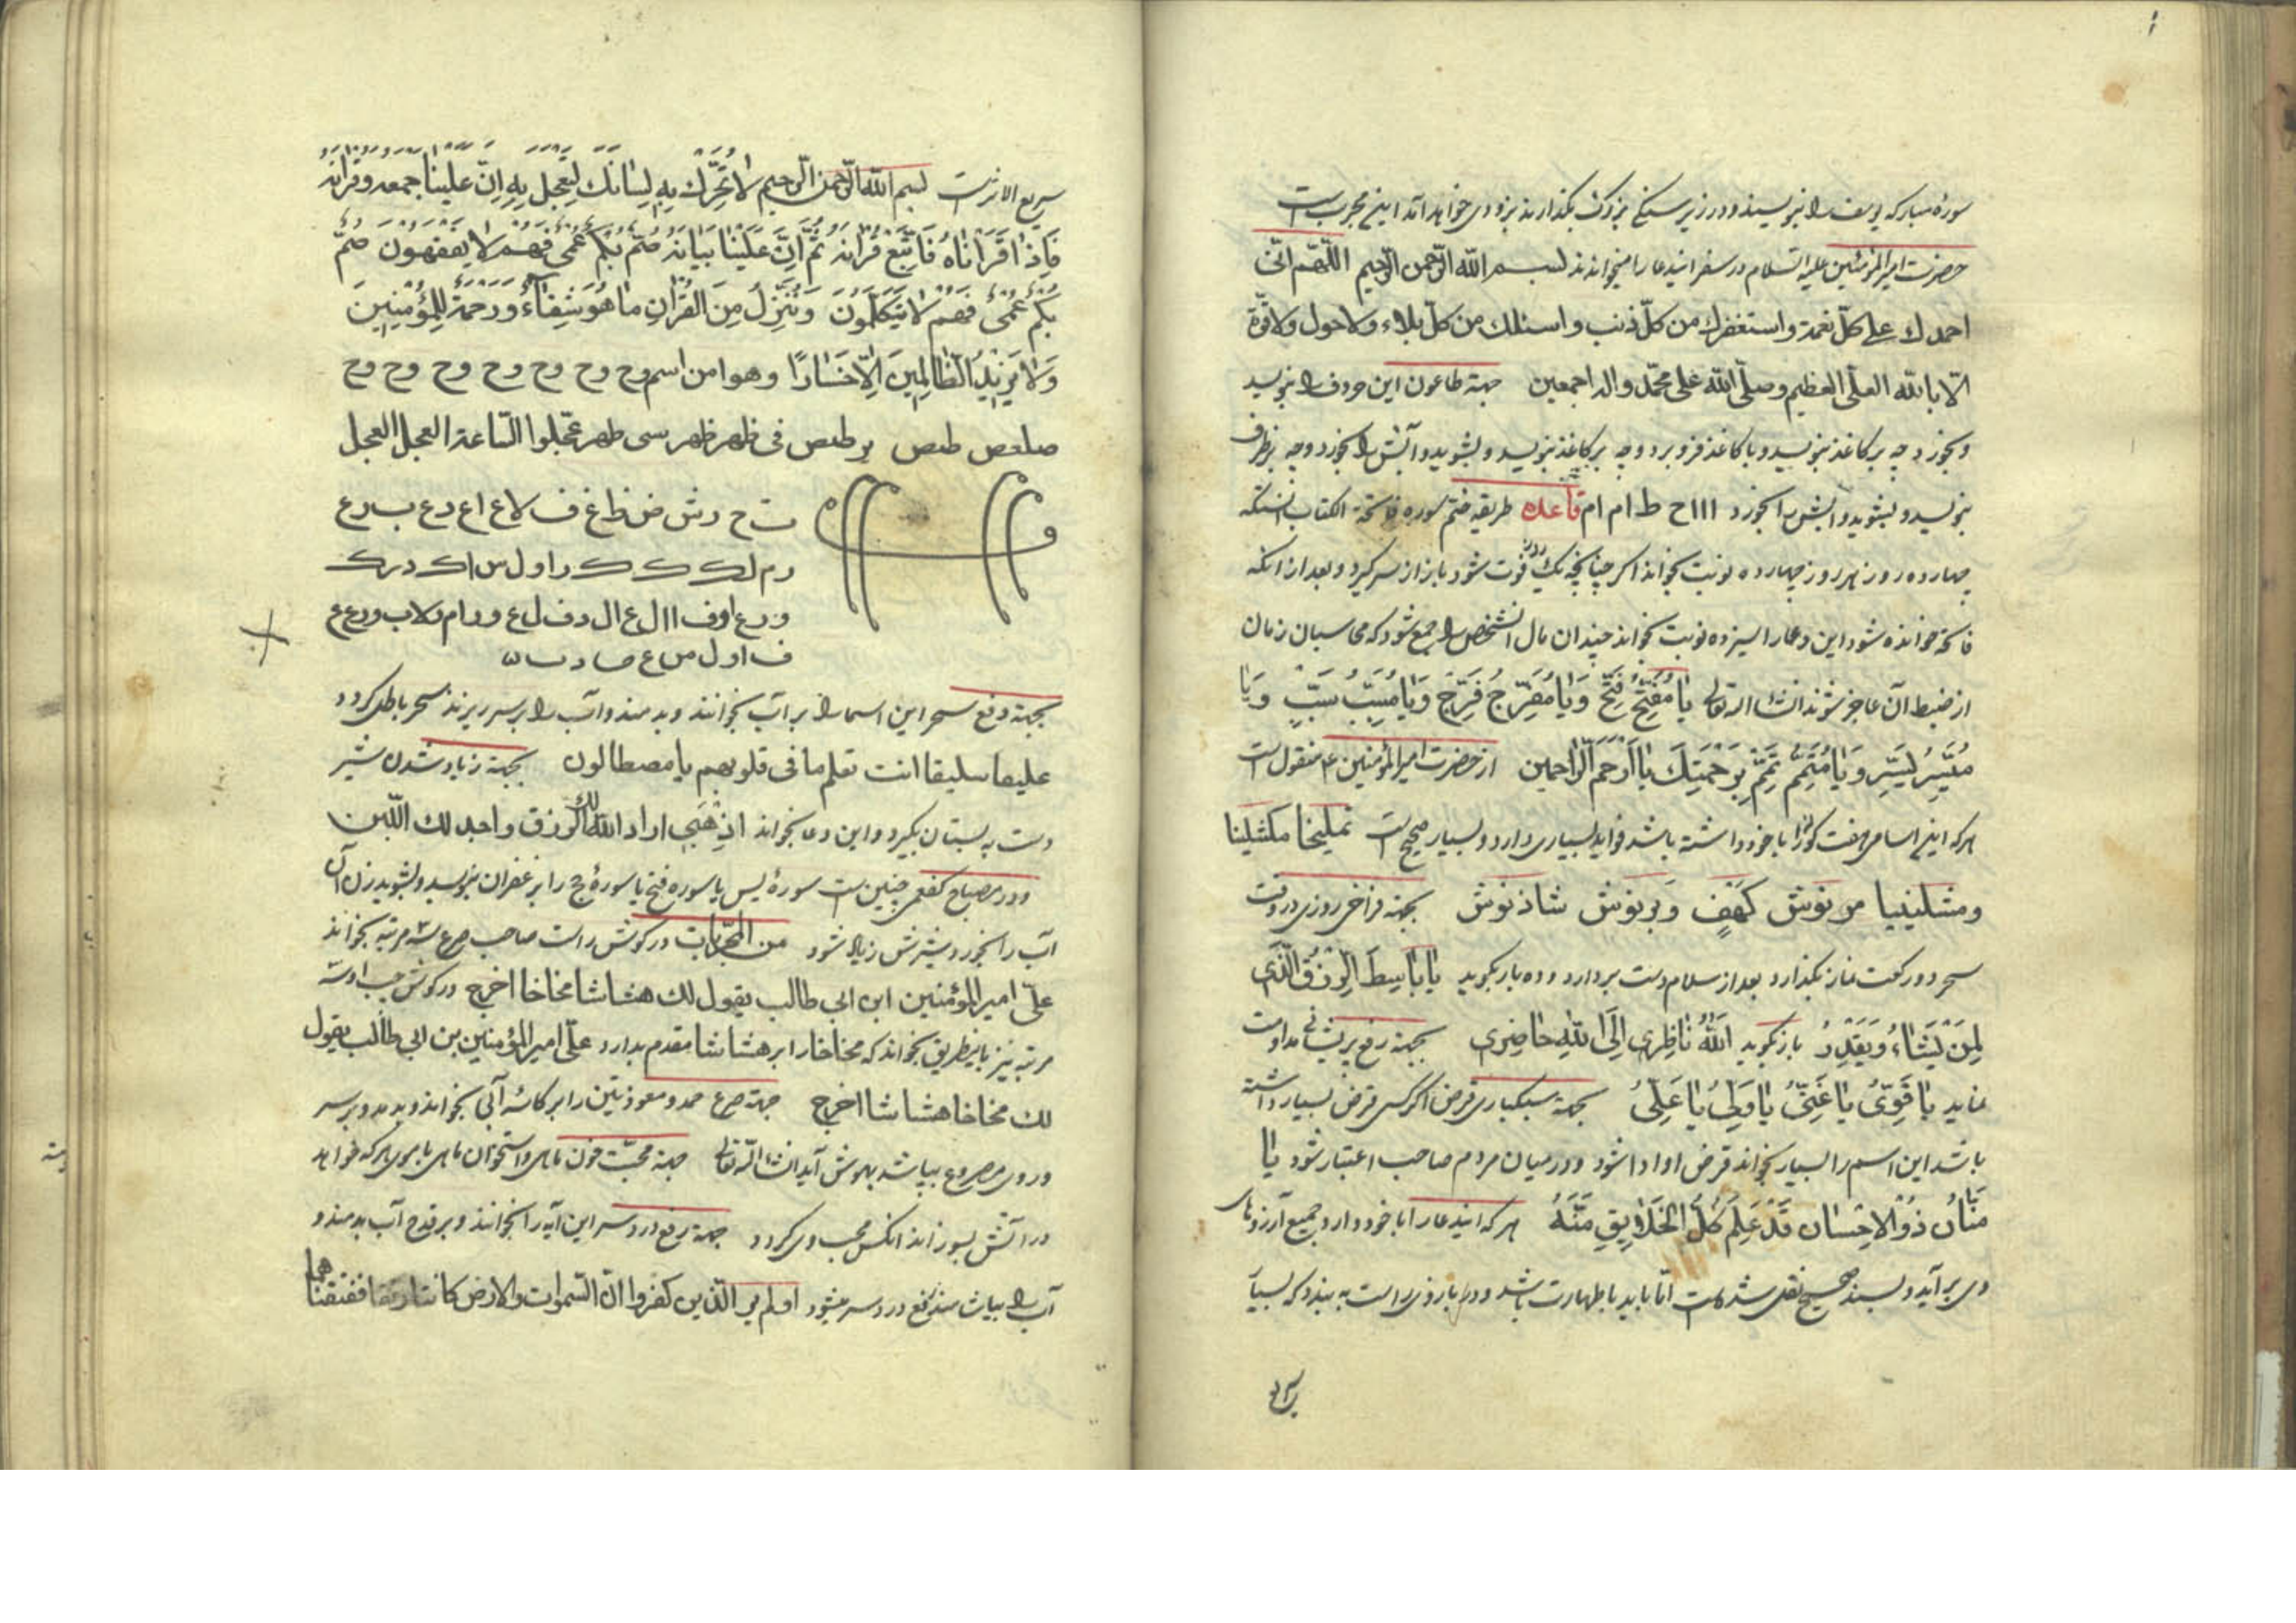 سورهٔ مبارکه یوسف را بنویسند و در زیر سنگی بزرگ بگذارند بزودی خواهد آمد این مجربست
حضرت امیرالمؤمنین علیه السلام در سفر ایندعا را میخواندند بسم الله الرّحمن الرّحیم اللّهّم انّی
احمدك علی كلّ نعمة واستغفرك من كلّ ذنب واسئلك من كلّ بلاء ولاحول ولاقوّة
الّا باللّه العلّی العظیم وصلّی اللّه علی محمّد واله اجمعین جهة طاعون این حروف را بنویسد
وبخورد چه بر کاغذ بنویسد و با کاغذ فرو برد و چه بر کاغذ بنویسد و بشوید و آبش را بخورد و چه بر ظرف
بنویسد و بشوید و آبش را بخورد ااا ح ط ام ام قاعده طریقه ختم سوره فاتحة الکتاب آنستکه
چهارده روز هر روز چهارده نوبت بخواند اگر چنانچه یك روز فوت شود باز از سر گیرد و بعد از آنکه
فاتحه خوانده شود این دعا را سیزده نوبت بخواند چندان مال آنشخص را جمع شود که محاسبان زمان
از ضبط آن عاجز شوند انشاء اله تعالی یا مُفَتِّحُ فَتِّحْ وَیا مُفَرِّجُ فَرِّجْ وَیا مُسَبِّبُ سَبِّبْ وَیا
مُیَسِّرُ یَسِّرْ وَیا مُتَمِّمُ تَمِّمْ بِرَحْمَتِكَ یا اَرْحَمَ الرّاحمین از حضرت امیرالمؤمنین ع منقولست
هر که این اسامی هفت را با خود داشته باشد فواید بسیاری دارد و بسیار صحیح است یملیخا مکثلینا
ومشلینیا مرنوش کهف وبرنوش شاذنوش بجهة فراخی روزی در وقت
سحر دو رکعت نماز بگذارد بعد از سلام دست بردارد و ده بار بگوید یا باسِطَ الرِّزْقِ الَّذی
لِمَنْ یَشاءُ وَیَقْدِرُ باز بگوید اَللّهُ ناظِری اِلَی اللّهِ حاضِری بجهة رفع پریشانی مداومت
نماید یا قَوِیُّ یا غَنِیُّ یا وَلِیُّ یا عَلِیُّ بجهة سبکباری قرض اگر کسی قرض بسیار داشته
باشد این اسم را بسیار بخواند قرض او ادا شود و در میان مردم صاحب اعتبار شود یا
مَنّانُ ذُوالاِحْسان قَدْ عَلِمَ كُلَّ الخَلایِقِ مَنَّهُ هر که ایندعا را با خود دارد جمیع آرزوهای
وی برآید و بسند صحیح نقل شده است امّا باید با طهارت باشد و در بازوی راست به بندد که بسیار
سریع الاثرست بسم اللّه الرّحمن الرّحیم لا تُحَرِّك بِهِ لِسانَكَ لِتَعْجَلَ بِهِ اِنَّ عَلَیْنا جمعه وقرانه
فَاِذا قَرَاْناهُ فَاتَّبِعْ قُرانَهُ ثُمَّ اِنَّ عَلَیْنا بَیانَهُ صُمٌّ بُكْمٌ عُمْیٌ فَهُمْ لا یَفْقَهُونَ صُمٌّ
بُكْمٌ عُمْیٌ فَهُمْ لا یَتَكَلَّمُونَ وَنُنَزِّلُ مِنَ القُرْآنِ ما هُوَ شِفاءٌ وَرَحْمَةٌ لِلْمُؤْمِنینَ
وَلا یَزیدُ الظّالِمینَ اِلّا خَسارًا وهو امن اسم وح وح وح وح وح وح وح وح
طیص فی ظهر ظهر سی طهر عجّلوا السّاعة العجل العجل
ت ح رش ض ظ غ ف لا ع اع دع ب رع
بجهة دفع سحر این اسما را بر آب بخوانند و بدمند و آب را بر سر ریزند سحر باطل گردد
علیقا سلیقا انت تعلم ما فی قلوبهم یا مصطالون بجهة زیاد شدن شیر
دست به پستان بگیرد و این دعا بخواند اراد اللّه لك الرزق واجد لك اللّبن
و در مصباح کفعمی چنین است سورهٔ یس یا سوره فتح یا سورهٔ حج را بزعفران بنویسد و بشوید زن آن
آب را بخورد شیرش زیاد شود من المجرّبات در گوش راست صاحب صرع سه مرتبه بخواند
علی امیر المؤمنین ابن ابی طالب یقول لك هشا شا مخاخا اخرج در گوش چپ او سه
مرتبه نیز باینطریق بخواند که مخاخا را بر هشا شا مقدم بدارد علّی امیر المؤمنین بن ابی طالب یقول
لك مخاخا هشا شا اخرج جهة صرع حمد و معوذتین را بر کاسهٔ آبی بخواند و بدمد و بر سر
و روی مصروع بپاشد بهوش آید انشاء اللّه تعالی جهة محبّت خون ماهی و استخوان ماهی با موی هر که خواهد
در آتش بسوزاند آنکس محب وی گردد جهة رفع درد سر این آیه را بخوانند و بر قدح آب بدمند و
آب را بیاشامند رفع درد سر میشود اولم یر الّذین كفروا انّ السّموات والارض كانتا رتقا ففتقناهما